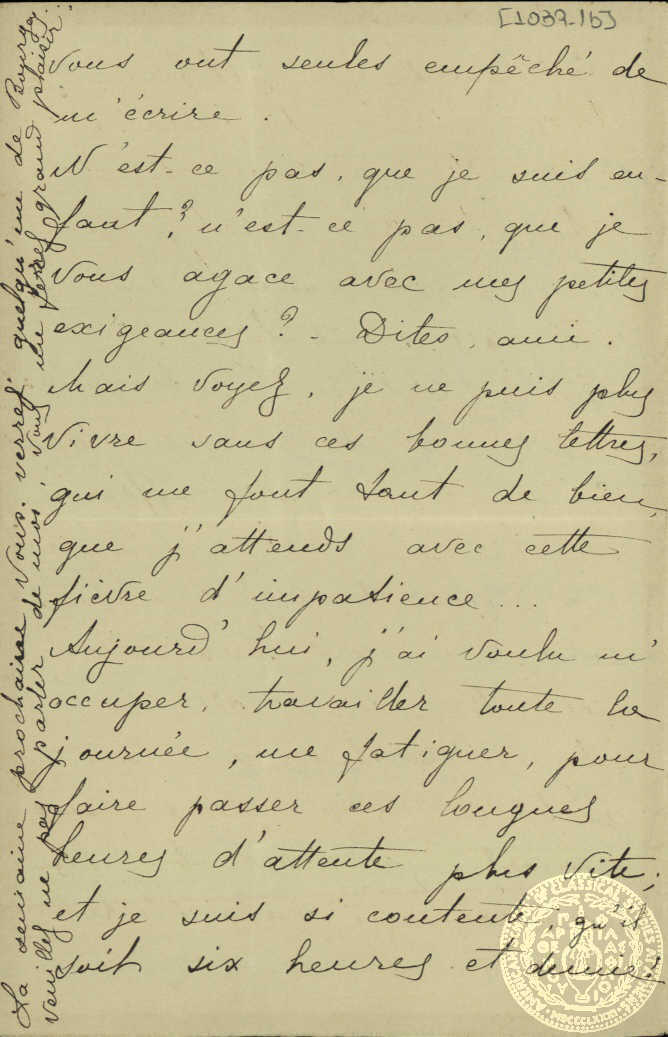 [1039-1b]
vous ont seules empêché de
m'écrire.
N'est-ce pas, que je suis en-
fant? n'est-ce pas, que je
vous agace avec mes petites
exigeances? - Dites, ami.
Mais voyez, je ne puis plus
vivre sans ces bonnes lettres,
qui me font tant de bien,
que j'attends avec cette
fièvre d'impatience...
Aujourd'hui, j'ai voulu m'
occuper, travailler toute la
journée, me fatiguer, pour
faire passer ces longues
heures d'attente plus vite;
et je suis si contente, qu'il
soit six heures et demie!
La semaine prochaine vous verrez quelqu'un de
veuillez ne pas parler de moi, vous me ferez grand plaisir.